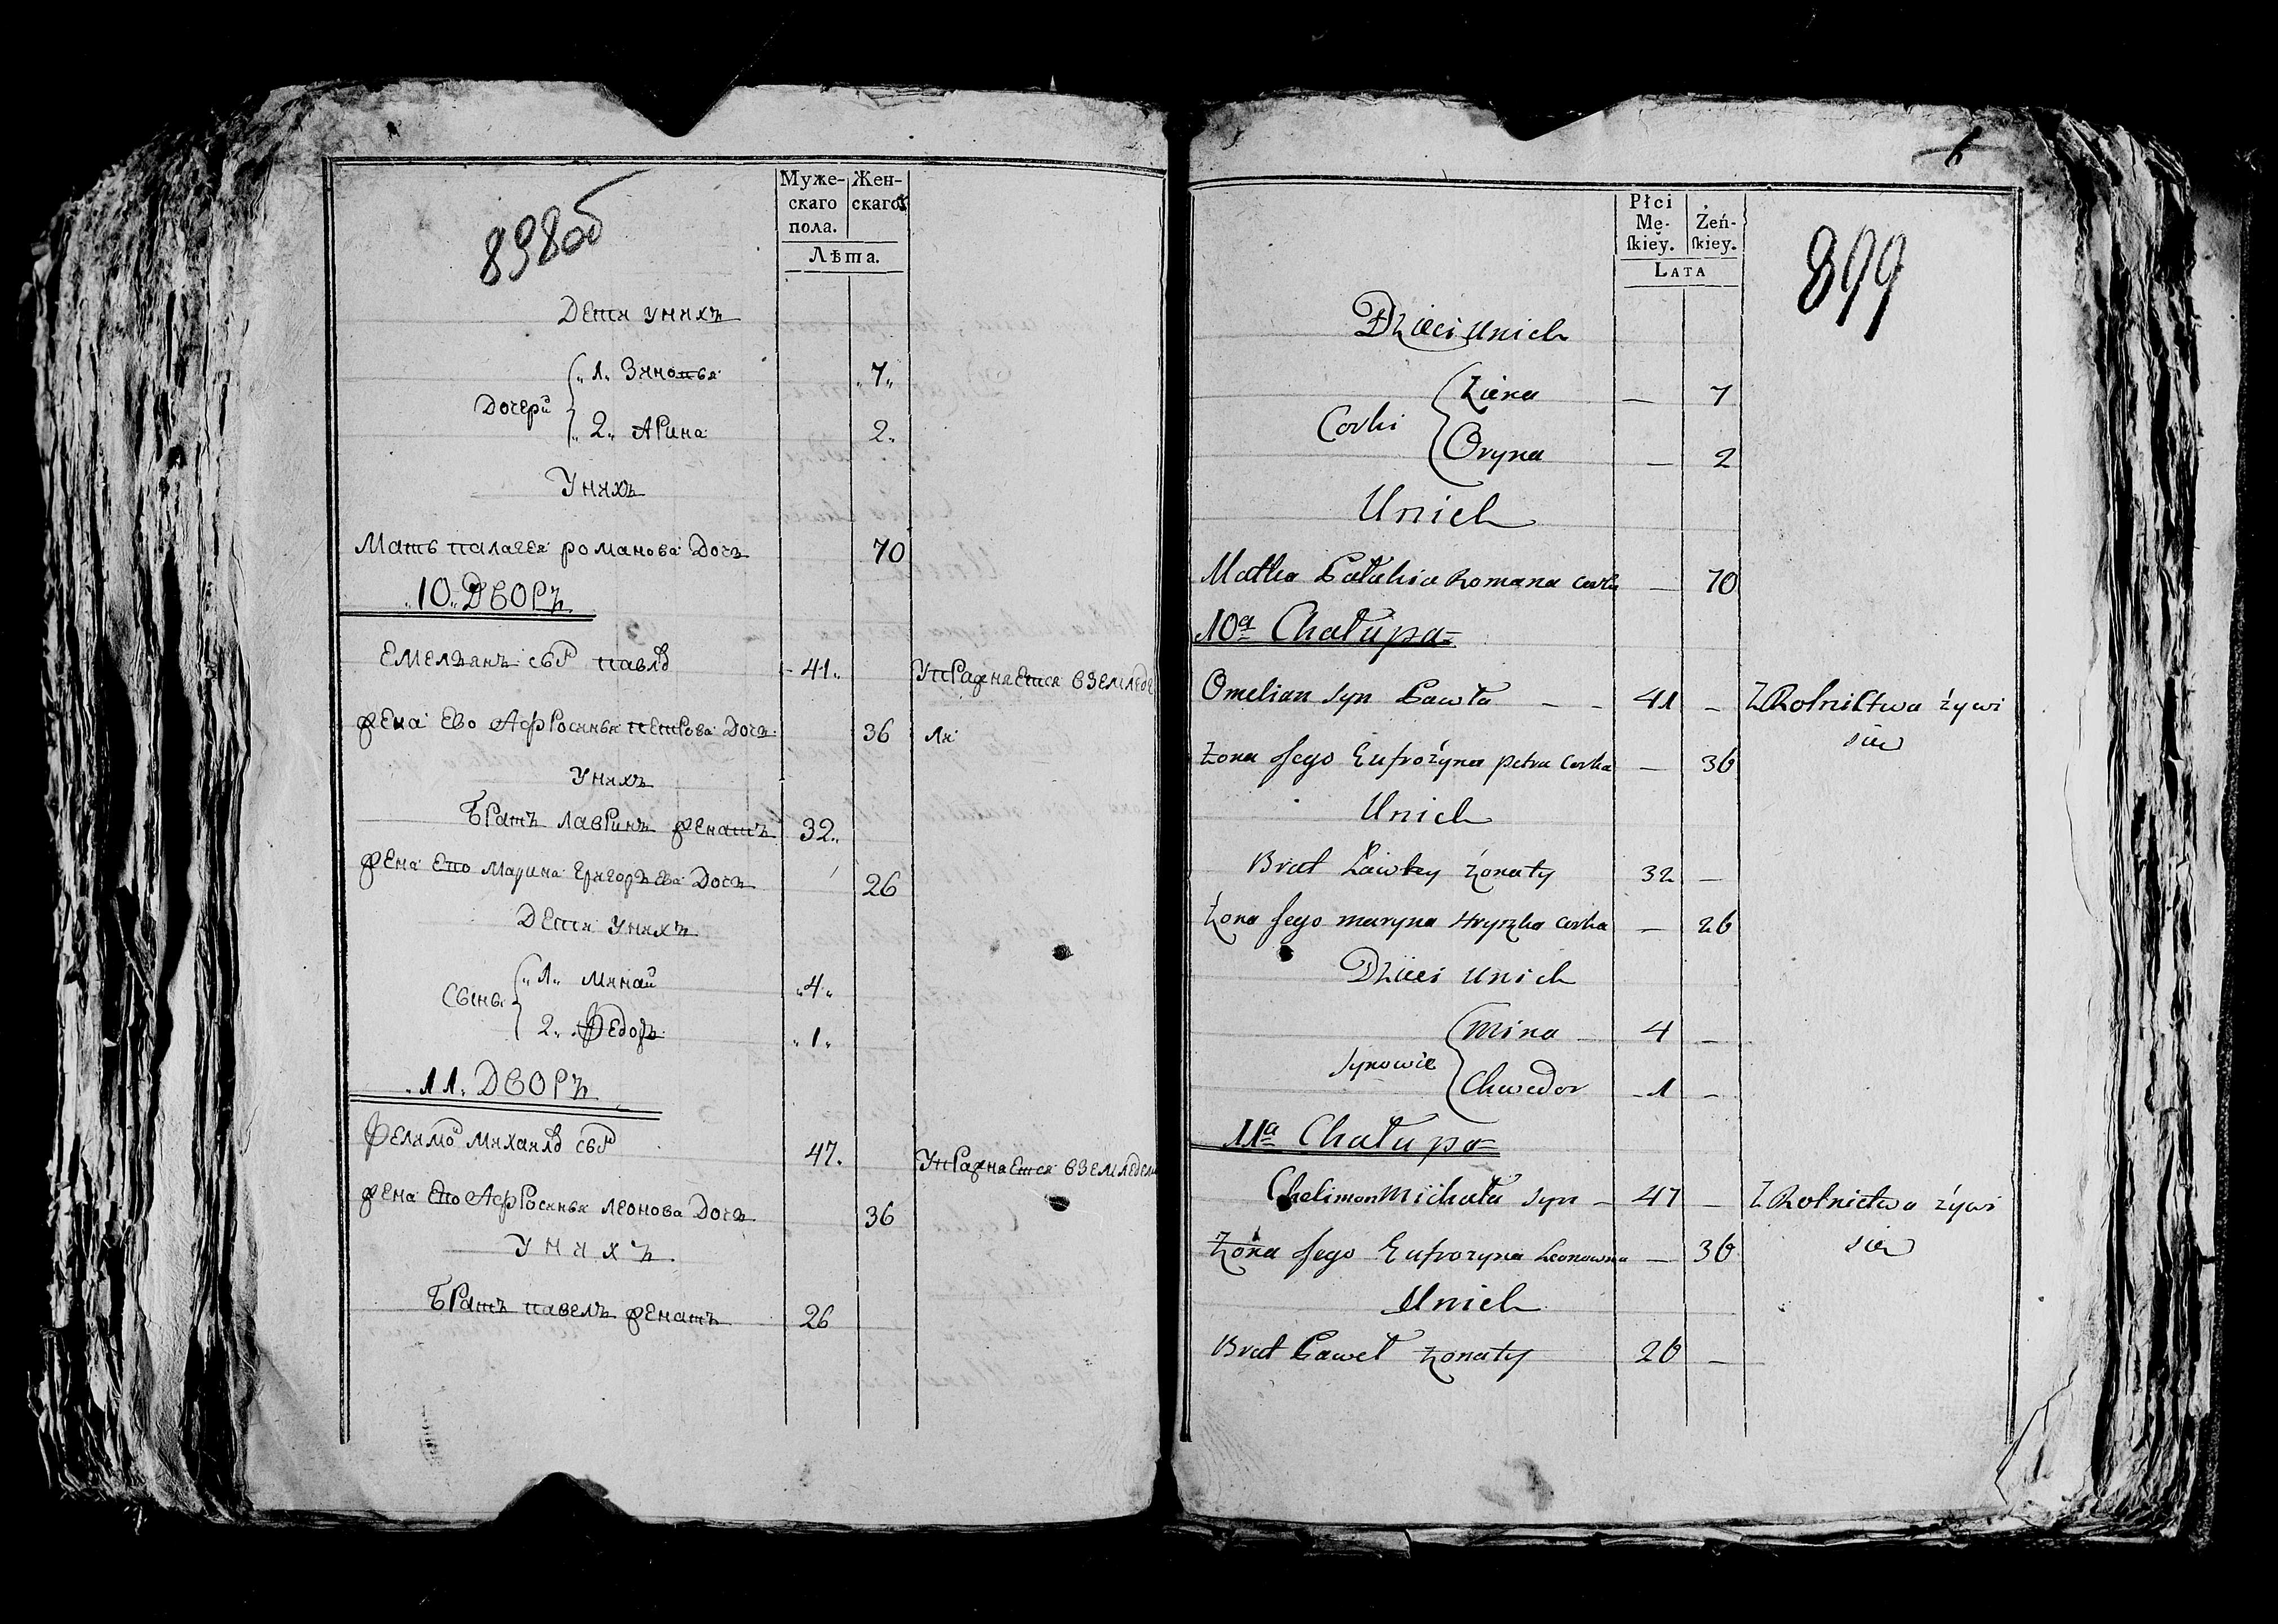 898об
Муже-
скаго
пола.
Жен-
скаго
Лѣта.
Дети унихъ
Дочери
1. Зиновья 7
2. Арина 2
Унихъ
Мать палагея романова Дочь 70
10 ДВОРЪ
Емелъянъ сынъ павловъ 41 Упражняется вземледе
жена Ево Афросинья петрова Дочь 36 ли
Унихъ
Братъ лавринъ женатъ 32
жена Ево Марина григоръева Дочь 26
Дети унихъ
Сыны
1. минай 4
2. Федоръ 1
11. ДВОРЪ
Фелимонъ михайловъ сынъ 47. Упражняется вземледели
жена Ево Афросинья леонова Дочь 36
Унихъ
Братъ павелъ женатъ 26
899
Płci
Mę-
ſkiey.
Żeń-
ſkiey.
LATA
Dzieci unich
Corki
Ziena — 7
Oryna — 2
Unich
Matka Pałahia Romana Corka — 70
10a Chałupa
Omelian syn Pawła — — 41 — Z Rolnictwa żywi
sie
Zona Jego Eufrożyna petra Corka — 36
Unich
Brat żonaty 32 —
Zona Jego maryna Hryszka Corka — 26
Dzieci unich
Synowie
Mina 4 —
Chwedor 1 —
11a Chałupa
Chelimon Michała syn — 47 — Z Rolnictwa żywi
sie
Zona Jego Eufrozyna Leonowna — 36
Unich
Brat Paweł żonaty 26 —